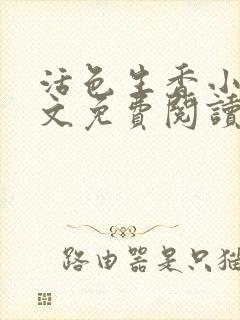 活色生香小
文免費閱讀
路由器是只猫